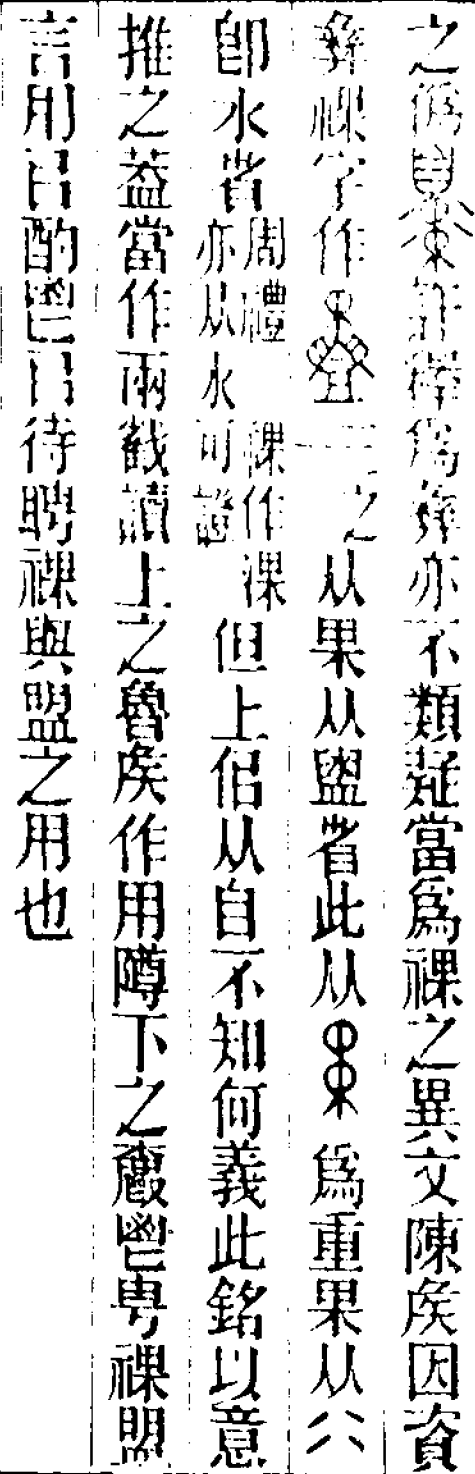 之僞許釋爲彝亦不類疑當爲祼之異文陳矦因資
彝祼字作之从果从盥省此从爲重果从八
卽水省周禮祼作淉亦从水可證但上侣从自不知何義此銘以意
推之葢當作兩截讀上之魯矦作用障下之鬯甹祼盟
言用㠯酌鬯㠯待聘祼與盟之用也